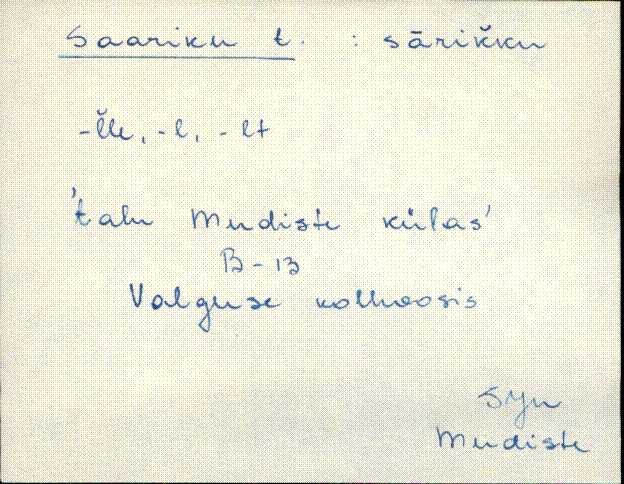 Saariku t. : sārik̆ku
-l̆le, -l, -lt
'talu Mudiste külas'
B-13
Valguse kolhoosis
SJn
Mudiste